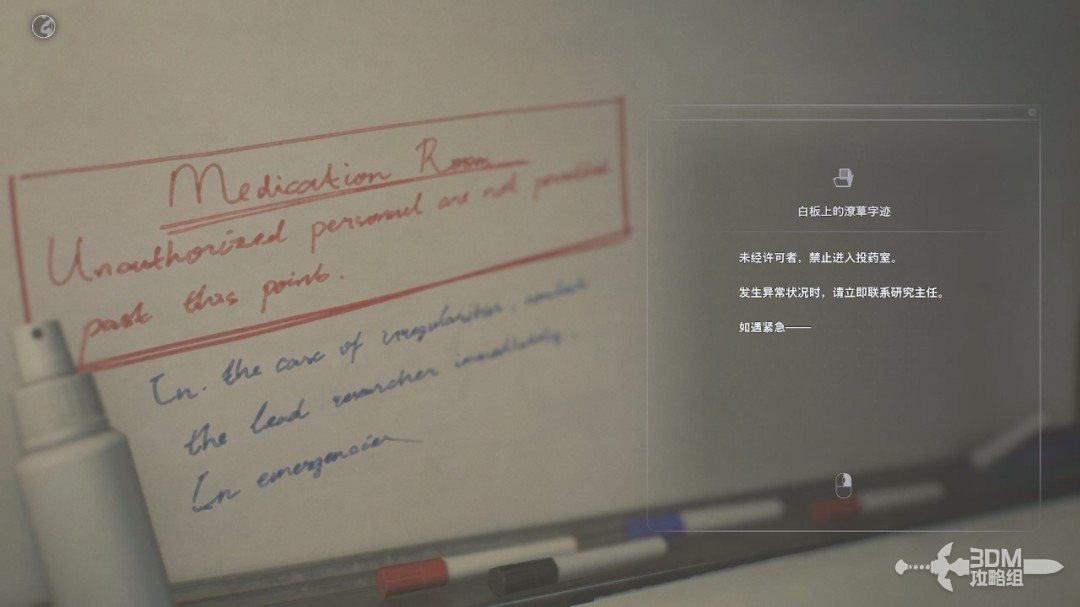 Medication Room
Unauthorized personnel are not permitted
past this point.
In the case of irregularities, contact
the lead researcher immediately.
In emergencies
白板上的潦草字迹
未经许可者，禁止进入投药室。
发生异常状况时，请立即联系研究主任。
如遇紧急——
3DM
攻略组